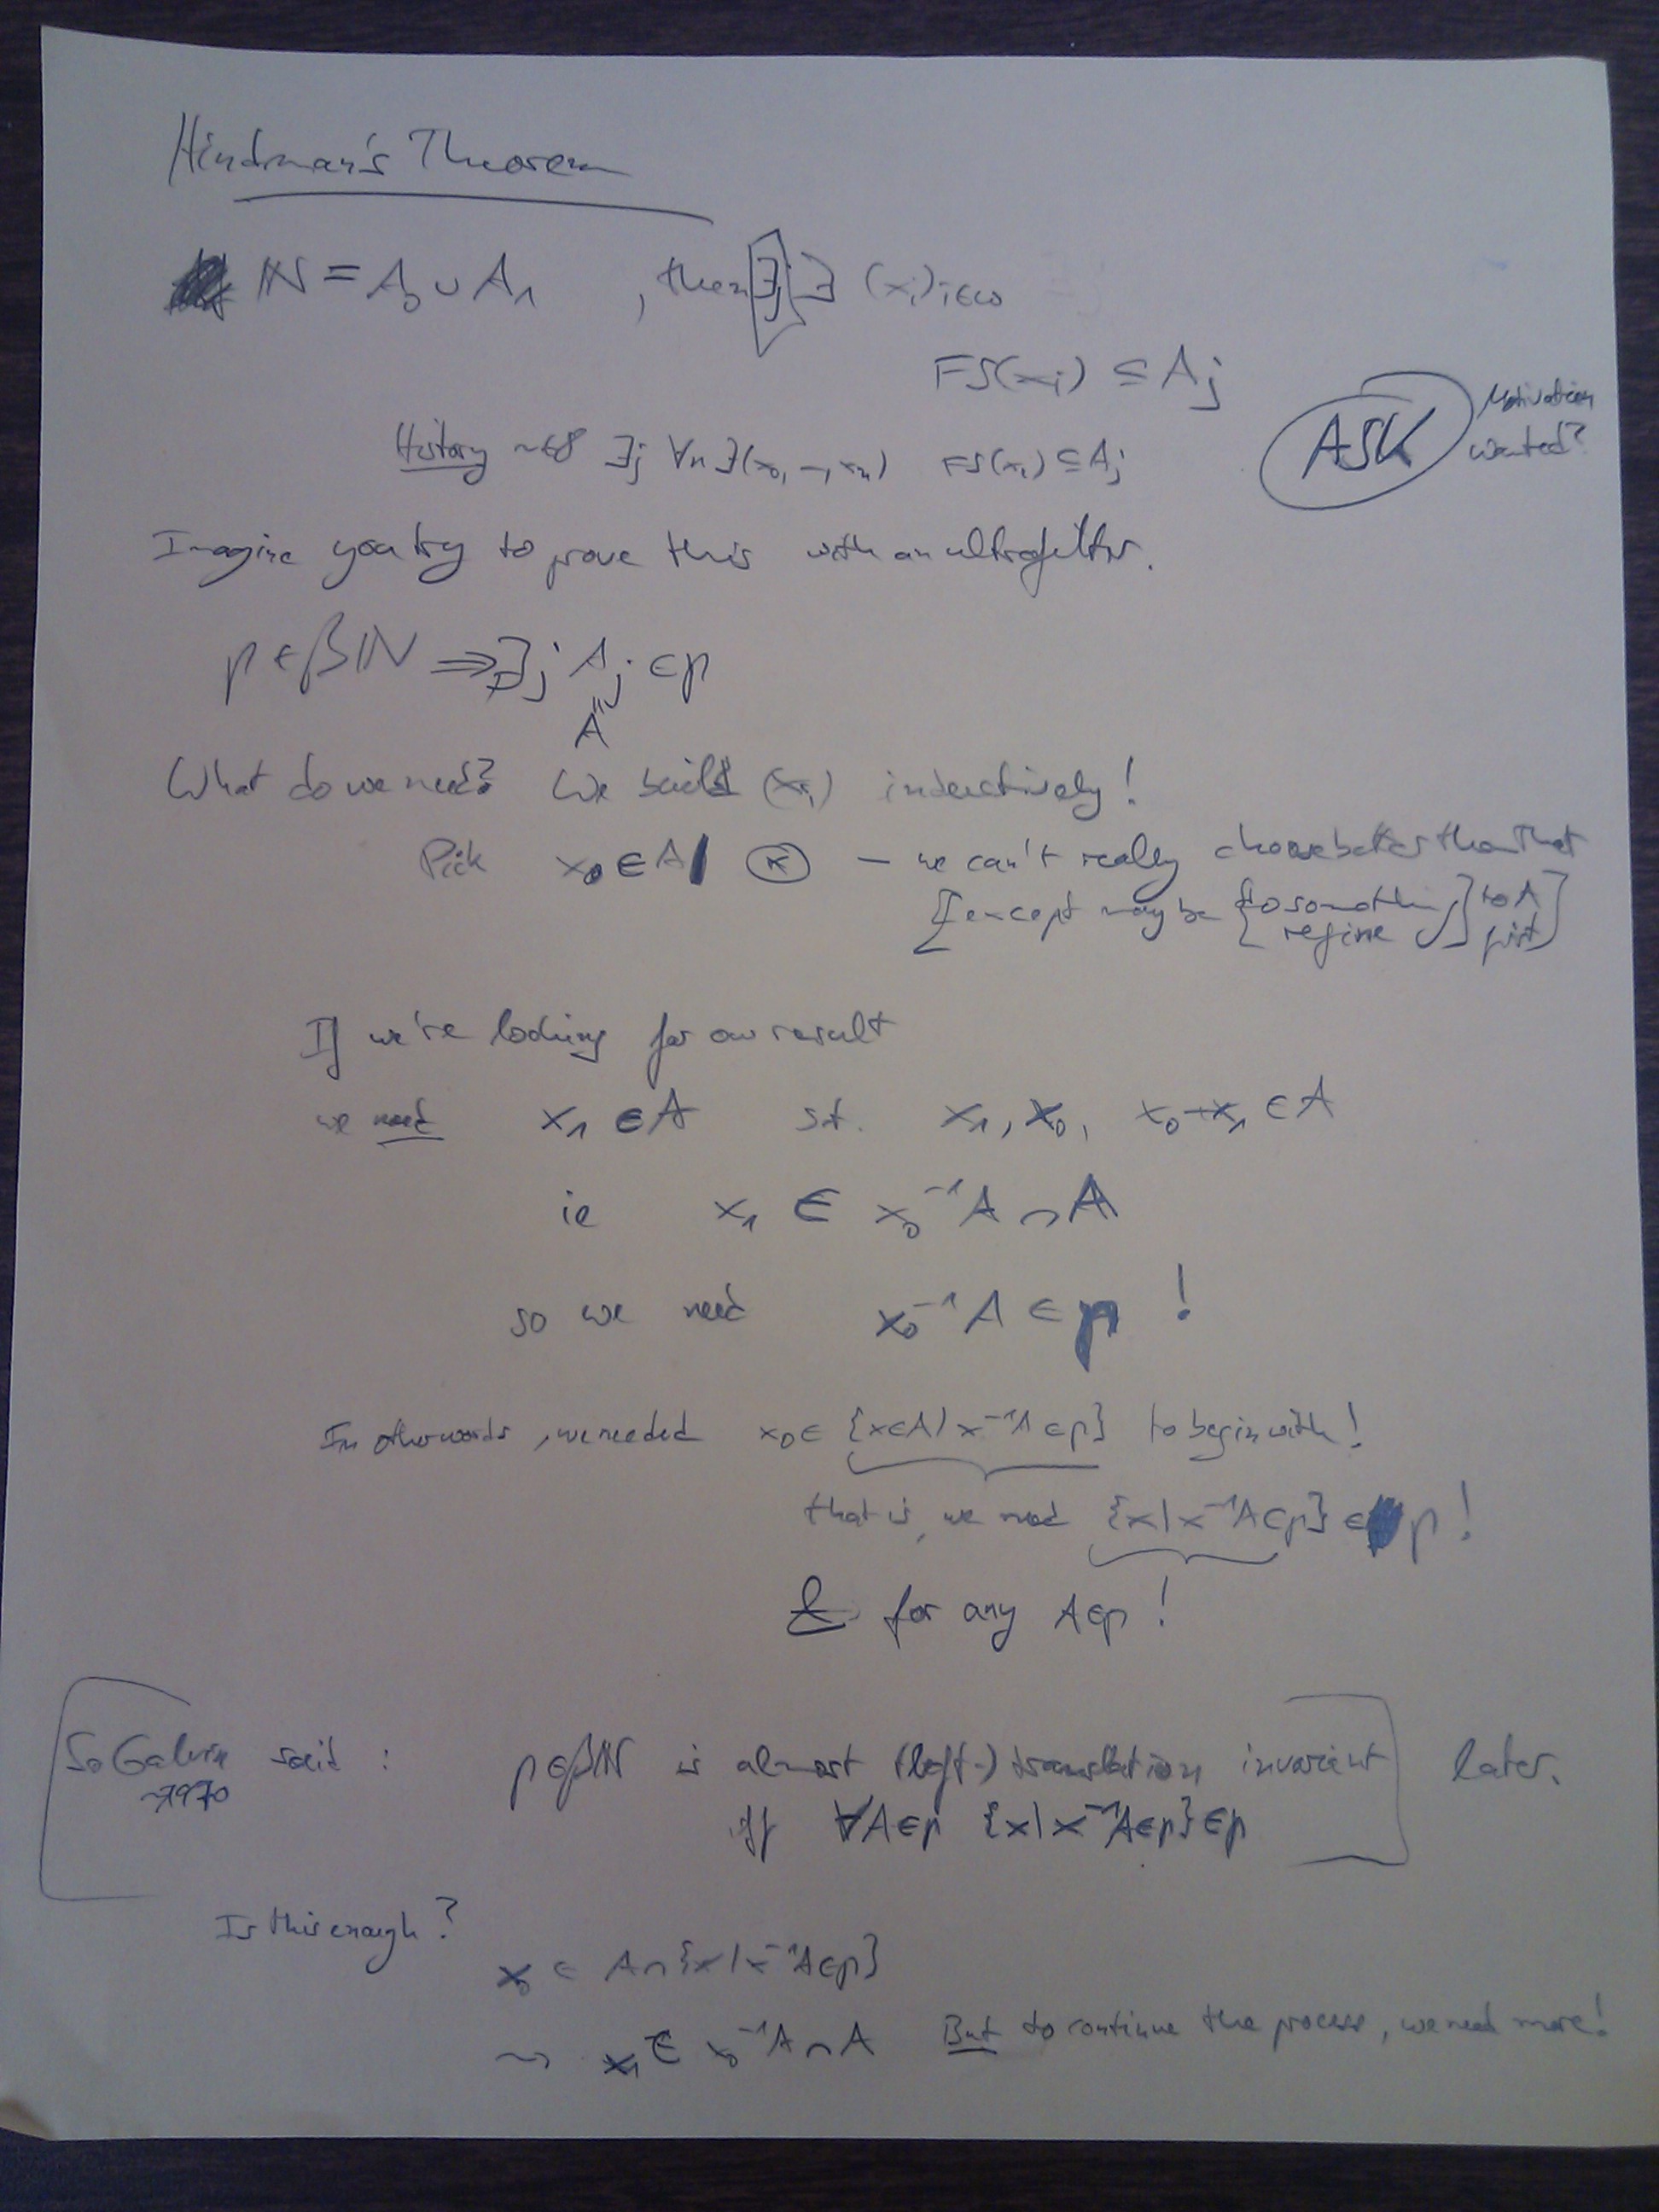 Hindman's Theorem
ℕ = A₀ ∪ A₁ , then ∃j ∃ (xᵢ)ᵢ∈ω
FS(xᵢ) ⊆ Aⱼ
ASK Motivation
wanted?
History ~68 ∃j ∀n ∃(x₀, –, xₙ) FS(xᵢ) ⊆ Aⱼ
Imagine you try to prove this with an ultrafilter.
p ∈ βℕ ⇒ ∃j Aⱼ ∈ p
"
A
What do we need? We build (xᵢ) inductively!
Pick x₀ ∈ A (*) – we can't really choose better than that
[except maybe {do something} to A
refine first]
If we're looking for our result
we need x₁ ∈ A st. x₁, x₀, x₀+x₁ ∈ A
ie x₁ ∈ x₀⁻¹A ∩ A
so we need x₀⁻¹A ∈ p !
In other words, we needed x₀ ∈ {x∈A | x⁻¹A ∈ p} to begin with!
that is, we need {x | x⁻¹A ∈ p} ∈ p !
& for any A∈p !
So Galvin said : p∈βℕ is almost (left-) translation invariant later.
~1970
iff ∀A∈p {x | x⁻¹A∈p} ∈ p
Is this enough?
x₀ ∈ A∩{x | x⁻¹A∈p}
⇝ x₁ ∈ x₀⁻¹A ∩ A But to continue the process, we need more!